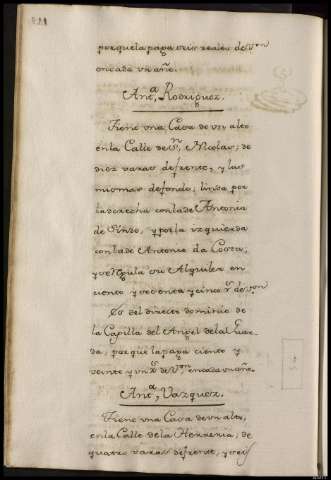 porque la paga seis reales de vⁿ
en cada un año.
Antª Rodriguez.
Tiene una Casa de un alto
en la Calle de Sⁿ Nicolas, de
diez varas de frente, y las
mismas de fondo, linda por
la derecha con la de Antonia
de Pinzo, y por la yzquierda
con la de Antonio da Costa,
y se regula su Alquiler en
ciento y sesenta y cinco rˢ de vⁿ
Es del directo dominio de
la Capilla del Angel de la Guar
da, por que la paga ciento y
veinte y un rˢ de vⁿ en cada un año.
Antª Vazquez.
Tiene una Casa de un alto,
en la Calle de la Herreria, de
quatro varas de frente, y seis